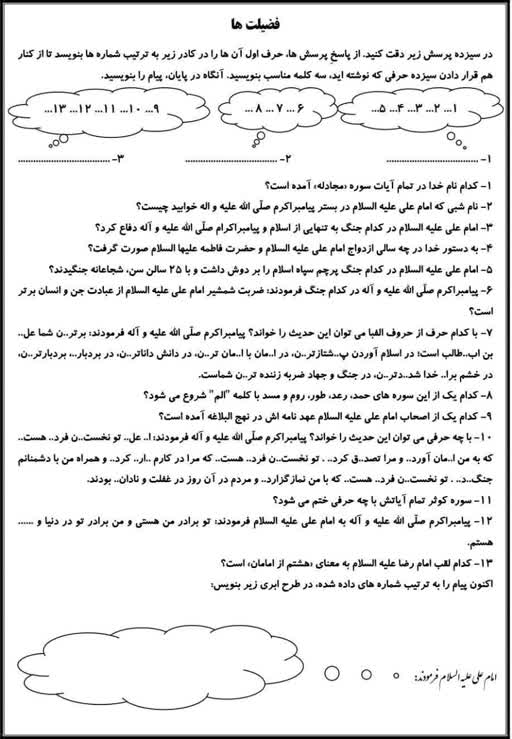 فضیلت ها
در سیزده پرسش زیر دقت کنید. از پاسخ پرسش ها، حرف اول آن ها را در کادر زیر به ترتیب شماره ها بنویسد تا از کنار
هم قرار دادن سیزده حرفی که نوشته اید، سه کلمه مناسب بنویسید. آنگاه در پایان، پیام را بنویسید.
۱... ۲... ۳... ۴... ۵...
۶... ۷... ۸ ...
۹... ۱۰... ۱۱... ۱۲... ۱۳...
۱- ................................
۲- ................................
۳- ................................
۱- کدام نام خدا در تمام آیات سوره «مجادله» آمده است؟
۲- نام شبی که امام علی علیه السلام در بستر پیامبراکرم صلّی الله علیه و اله خوابید چیست؟
۳- امام علی علیه السلام در کدام جنگ به تنهایی از اسلام و پیامبراکرام صلّی الله علیه و آله دفاع کرد؟
۴- به دستور خدا در چه سالی ازدواج امام علی علیه السلام و حضرت فاطمه علیها السلام صورت گرفت؟
۵- امام علی علیه السلام در کدام جنگ پرچم سپاه اسلام را بر دوش داشت و با ۲۵ سالن سن، شجاعانه جنگیدند؟
۶- پیامبراکرم صلّی الله علیه و آله در کدام جنگ فرمودند: ضربت شمشیر امام علی علیه السلام از عبادت جن و انسان برتر
است؟
۷- با کدام حرف از حروف الفبا می توان این حدیث را خواند؟ پیامبراکرم صلّی الله علیه و آله فرمودند: برتر..ن شما عل..
بن اب..طالب است؛ در اسلام آوردن پ..شتازتر..ن، در ا..مان با ا..مان تر..ن، در دانش داناتر..ن، در بردبار..، بردبارتر..ن،
در خشم برا.. خدا شد..دتر..ن، در جنگ و جهاد ضربه زننده تر..ن شماست.
۸- کدام یک از این سوره های حمد، رعد، طور، روم و مسد با کلمه "الم" شروع می شود؟
۹- کدام یک از اصحاب امام علی علیه السلام عهد نامه اش در نهج البلاغه آمده است؟
۱۰- با چه حرفی می توان این حدیث را خواند؟ پیامبراکرم صلّی الله علیه و آله فرمودند: ا.. عل.. تو نخست..ن فرد.. هست..
که به من ا..مان آورد.. و مرا تصد..ق کرد.. . تو نخست..ن فرد.. هست.. که مرا در کارم ..ار.. کرد.. و همراه من با دشمنانم
جنگ..د.. . تو نخست..ن فرد.. هست.. که با من نمازگزارد.. و مردم در آن روز در غفلت و نادان.. بودند.
۱۱- سوره کوثر تمام آیاتش با چه حرفی ختم می شود؟
۱۲- پیامبراکرم صلّی الله علیه و آله به امام علی علیه السلام فرمودند: تو برادر من هستی و من برادر تو در دنیا و ......
هستم.
۱۳- کدام لقب امام رضا علیه السلام به معنای «هشتم از امامان» است؟
اکنون پیام را به ترتیب شماره های داده شده، در طرح ابری زیر بنویس:
امام علی علیه السلام فرمودند: